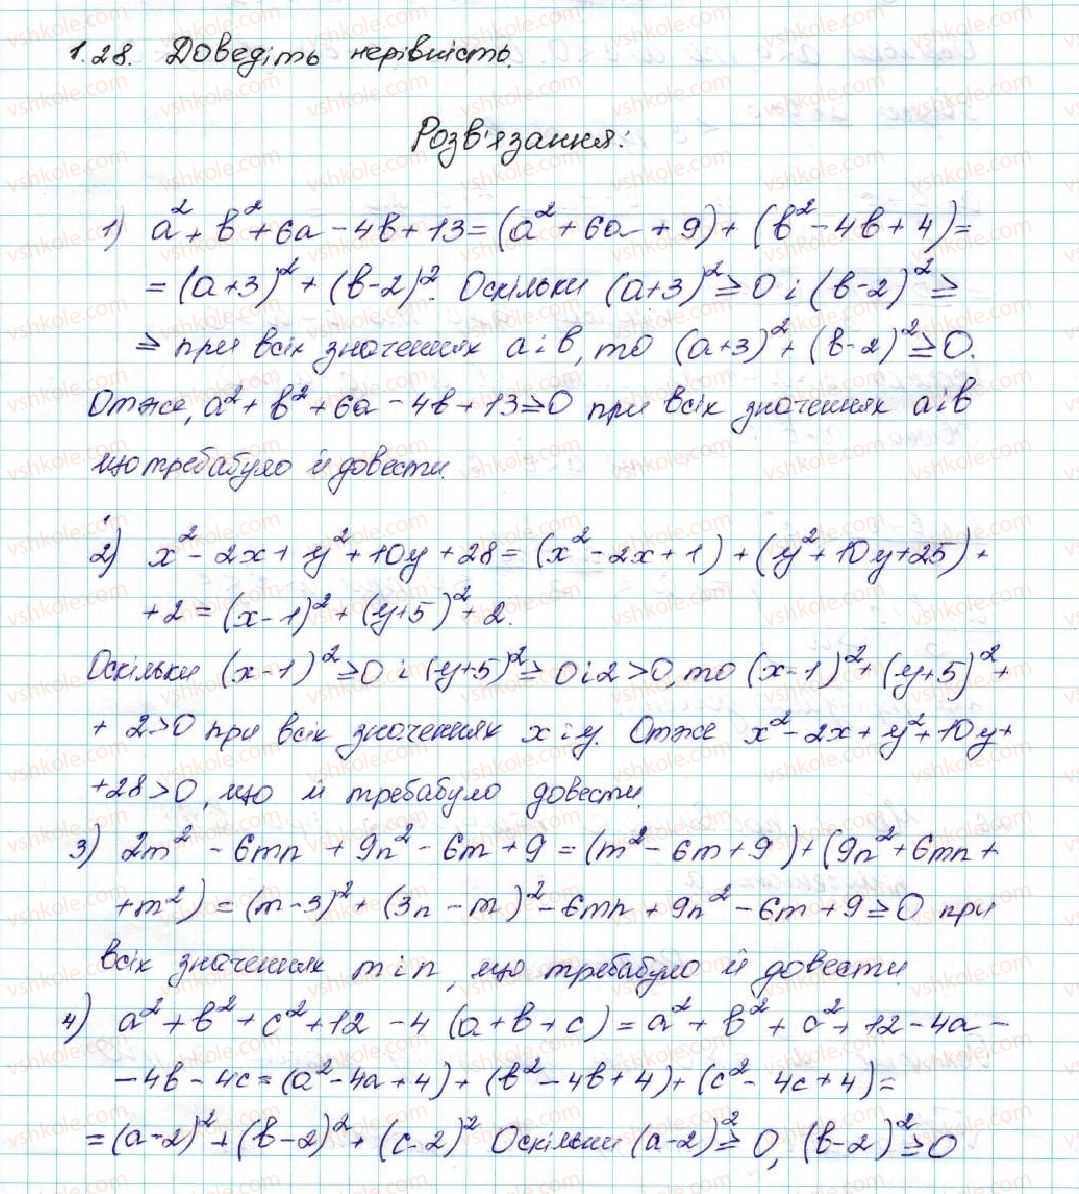 1.28. Доведіть нерівність.
Розв'язання:
1) a² + b² + 6a - 4b + 13 = (a² + 6a + 9) + (b² - 4b + 4) =
= (a+3)² + (b-2)². Оскільки (a+3)² ≥ 0 і (b-2)² ≥
≥ при всіх значеннях a і b, то (a+3)² + (b-2)² ≥ 0.
Отже, a² + b² + 6a - 4b + 13 ≥ 0 при всіх значеннях a і b
що треба було й довести.
2) x² - 2x + y² + 10y + 28 = (x² - 2x + 1) + (y² + 10y + 25) +
+ 2 = (x-1)² + (y+5)² + 2.
Оскільки (x-1)² ≥ 0 і (y+5)² ≥ 0 і 2 > 0, то (x-1)² + (y+5)² +
+ 2 > 0 при всіх значеннях x і y. Отже x² - 2x + y² + 10y +
+ 28 > 0, що й треба було довести.
3) 2m² - 6mn + 9n² - 6m + 9 = (m² - 6m + 9) + (9n² + 6mn +
+ m²) = (m-3)² + (3n - m)² - 6mn + 9n² - 6m + 9 ≥ 0 при
всіх значеннях m і n, що треба було й довести
4) a² + b² + c² + 12 - 4 (a + b + c) = a² + b² + c² + 12 - 4a -
- 4b - 4c = (a² - 4a + 4) + (b² - 4b + 4) + (c² - 4c + 4) =
= (a-2)² + (b-2)² + (c-2)² Оскільки (a-2)² ≥ 0, (b-2)² ≥ 0